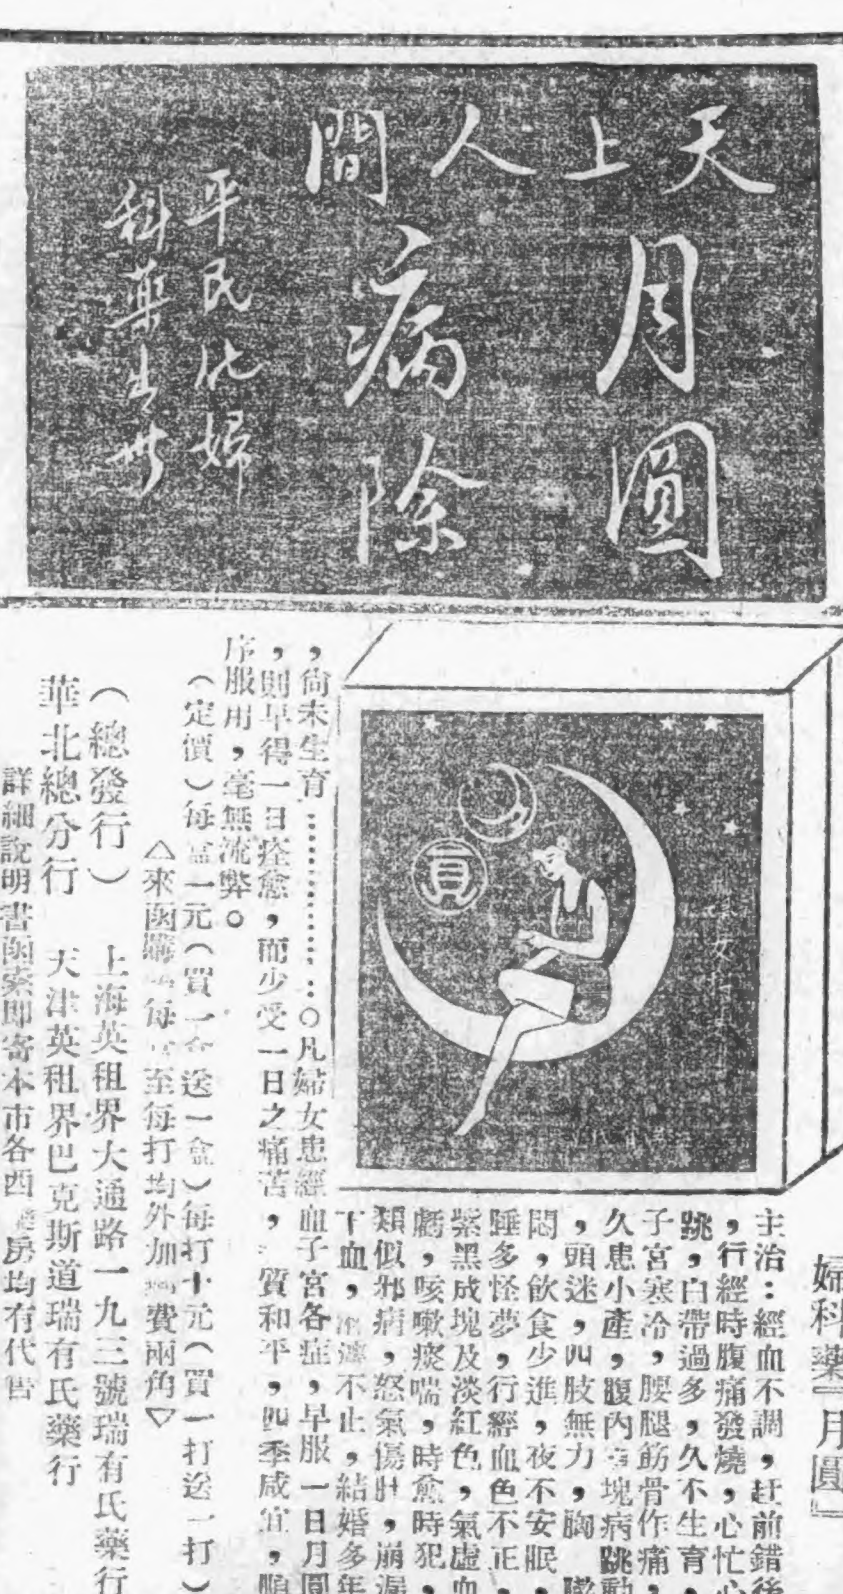 天上人間
月圓
病除
平民化婦
科藥出世
圓
婦科藥『月圓』
主治：經血不調，赶前錯後
，行經時腹痛發燒，心忙心
跳，白帶過多，久不生育，
子宮寒冷，腰腿筋骨作痛，
久患小產，腹內有塊病跳動
，頭迷，四肢無力，胸
悶，飲食少進，夜不安眠，
睡多怪夢，行經血色不正，
紫黑成塊及淡紅色，氣虛血
虧，咳嗽痰喘，時愈時犯，
類似邪病，怒氣傷肝，崩漏
下血，不止，結婚多年
，尙未生育………………：○凡婦女患經血子宮各症，早服一日月圓
，則早得一日痊愈，而少受一日之痛苦，質和平，四季咸宜，順
序服用，毫無流弊。
（定價）每盒一元（買一盒送一盒）每打十元（買一打送一打）
△來函購每至每打均外加費兩角▽
（總發行）　上海英租界大通路一九三號瑞有氏藥行
華北總分行　天津英租界巴克斯道瑞有氏藥行
詳細說明書函索即寄本市各西房均有代售